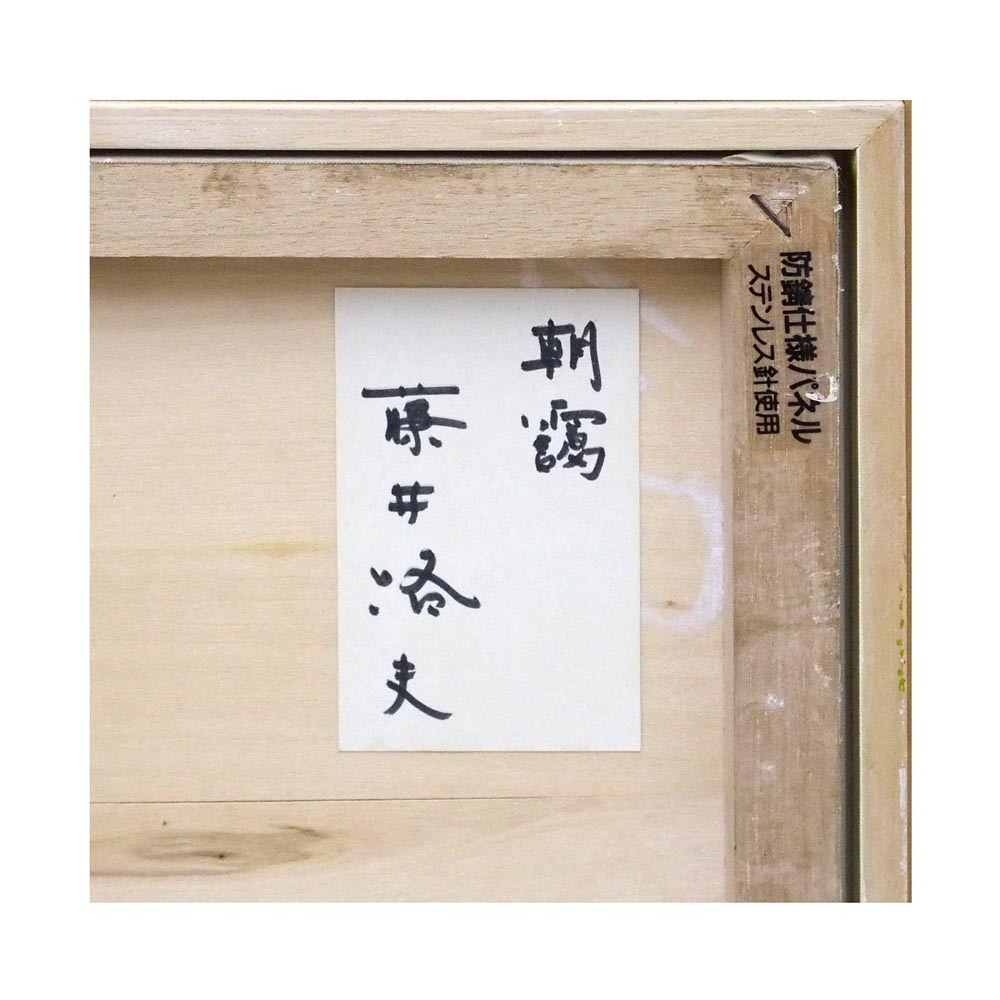 防錆仕様パネル
ステンレス針使用
朝靄
藤井洛夫